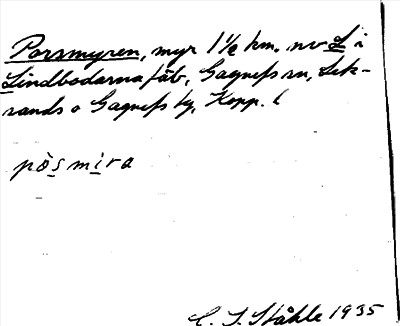 Porsmyren, myr 1 1/2 km. nv L i
Lindbodarna fäb., Gagnefs sn, Lek-
sands o Gagnefs tg, Kopp. l
pòsmira
C. I. Ståhle 1935